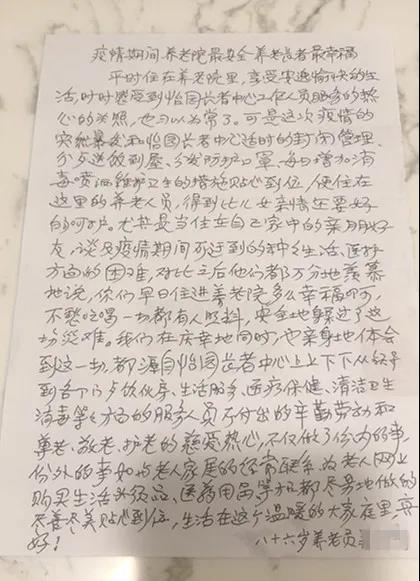 疫情期间养老院最安全养老长者最幸福
平时住在养老院里,享受安逸愉快的生
活,时时感受到怡园长者中心工作人员服务的热
心的关照,也习以为常了。可是这次疫情的
突然暴发和怡园长者中心适时的封闭管理、
分发送饭到屋、分发防护口罩、每日增加消
毒喷洒维护卫生的措施贴心到位,使住在
这里的养老人员,得到比儿女亲情还要好
的呵护。尤其是当住在自己家中的亲朋好
友,谈及疫情期间所遇到的种种生活、医护
方面的困难,对比之后他们都万分地羡慕
地说,你们早日住进养老院多么幸福啊,
不愁吃喝一切都有人照料,安全地躲过了这
场災难。我们在庆幸地同时,也亲身地体会
到这一切,都源自怡园长者中心上上下下从领导
到各个门卡饮伙房、生活服务、医疗保健、清洁卫生
消毒等各方面的服务人员所付出的辛勤劳动和
尊老、敬老、护老的慈爱热心,不仅做了份内的事,
份外的事如与老人家属的经常联系、为老人网上
购买生活必须品、医药用品等、都尽力地做的
尽善尽美贴心到位,生活在这个温暖的大家庭里真
好!
八十六岁养老员